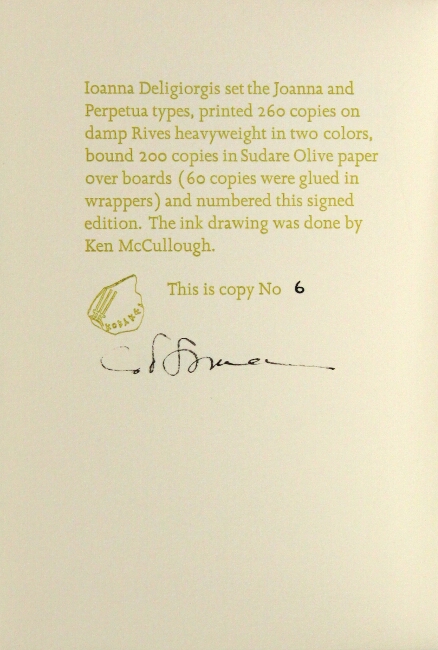 Ioanna Deligiorgis set the Joanna and
Perpetua types, printed 260 copies on
damp Rives heavyweight in two colors,
bound 200 copies in Sudare Olive paper
over boards (60 copies were glued in
wrappers) and numbered this signed
edition. The ink drawing was done by
Ken McCullough.
This is copy No 6